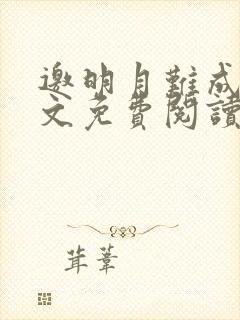 邀明月難成
文免費閱讀
茸葦